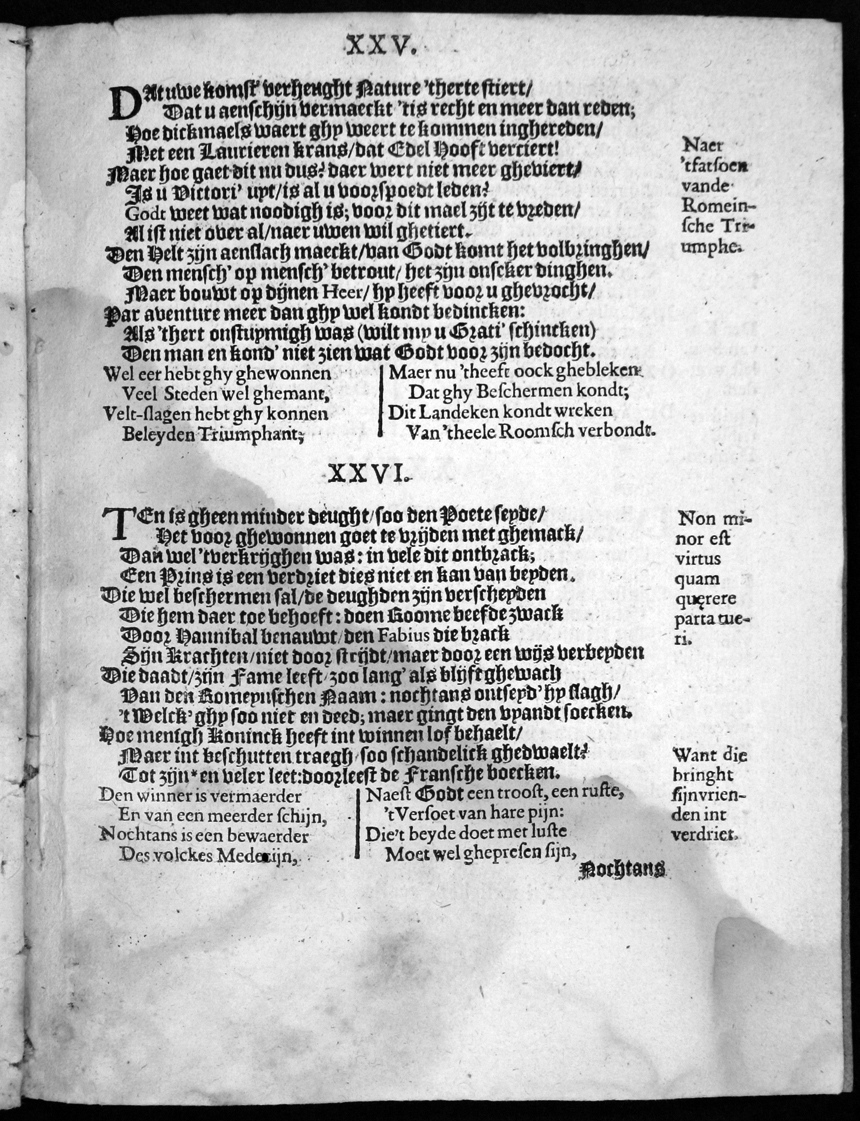 XXV.
DAt uwe komst' verheught Nature 'therte stiert/
Dat u aenschijn vermaeckt 'tis recht en meer dan reden;
Hoe dickmaels waert ghy weert te kommen inghereden/
Met een Laurieren krans/dat Edel Hooft verciert!
Maer hoe gaet dit nu dus? daer wert niet meer gheviert/
Is u Victori' uyt/is al u voorspoedt leden?
Godt weet wat noodigh is; voor dit mael zijt te vreden/
Al ist niet over al/naer uwen wil ghetiert.
Den Helt zijn aenslach maeckt/van Godt komt het volbringhen/
Den mensch' op mensch' betrout/ het zijn onseker dinghen.
Maer bouwt op dijnen Heer/ hy heeft voor u ghevrocht/
Par aventure meer dan ghy wel kondt bedincken:
Als 'thert onstuymigh was (wilt my u Grati' schincken)
Den man en kond' niet zien wat Godt voor zijn bedocht.
Naer
'tfatsoen
vande
Romein-
sche Tri-
umphe.
Wel eer hebt ghy ghewonnen
Veel Steden wel ghemant,
Velt-slagen hebt ghy konnen
Beleyden Triumphant;
Maer nu 'theeft oock ghebleken
Dat ghy Beschermen kondt;
Dit Landeken kondt wreken
Van 'theele Roomsch verbondt.
XXVI.
TEn is gheen minder deught/soo den Poete seyde/
Het voor ghewonnen goet te vrijden met ghemack/
Dan wel 'tverkrijghen was: in vele dit ontbrack;
Een Prins is een verdriet dies niet en kan van beyden.
Die wel beschermen sal/de deughden zijn verscheyden
Die hem daer toe behoeft: doen Roome beefde zwack
Door Hannibal benauwt/den Fabius die brack
Sijn Krachten/niet door strijdt/maer door een wijs verbeyden
Die daadt/zijn Fame leeft/zoo lang' als blijft ghewach
Van den Romeynschen Naam: nochtans ontseyd' hy slagh/
't Welck' ghy soo niet en deed; maer gingt den vyandt soecken.
Hoe menigh Koninck heeft int winnen lof behaelt/
Maer int beschutten traegh/soo schandelick ghedwaelt?
Tot zijn* en veler leet: doorleest de Fransche boecken.
Non mi-
nor est
virtus
quam
quęrere
parta tue-
ri.
Want die
bringht
sijnvrien-
den int
verdriet.
Den winner is vermaerder
En van een meerder schijn,
Nochtans is een bewaerder
Des volckes Medecijn,
Naest Godt een troost, een ruste,
'tVersoet van hare pijn:
Die't beyde doet met luste
Moet wel ghepresen sijn,
Nochtans